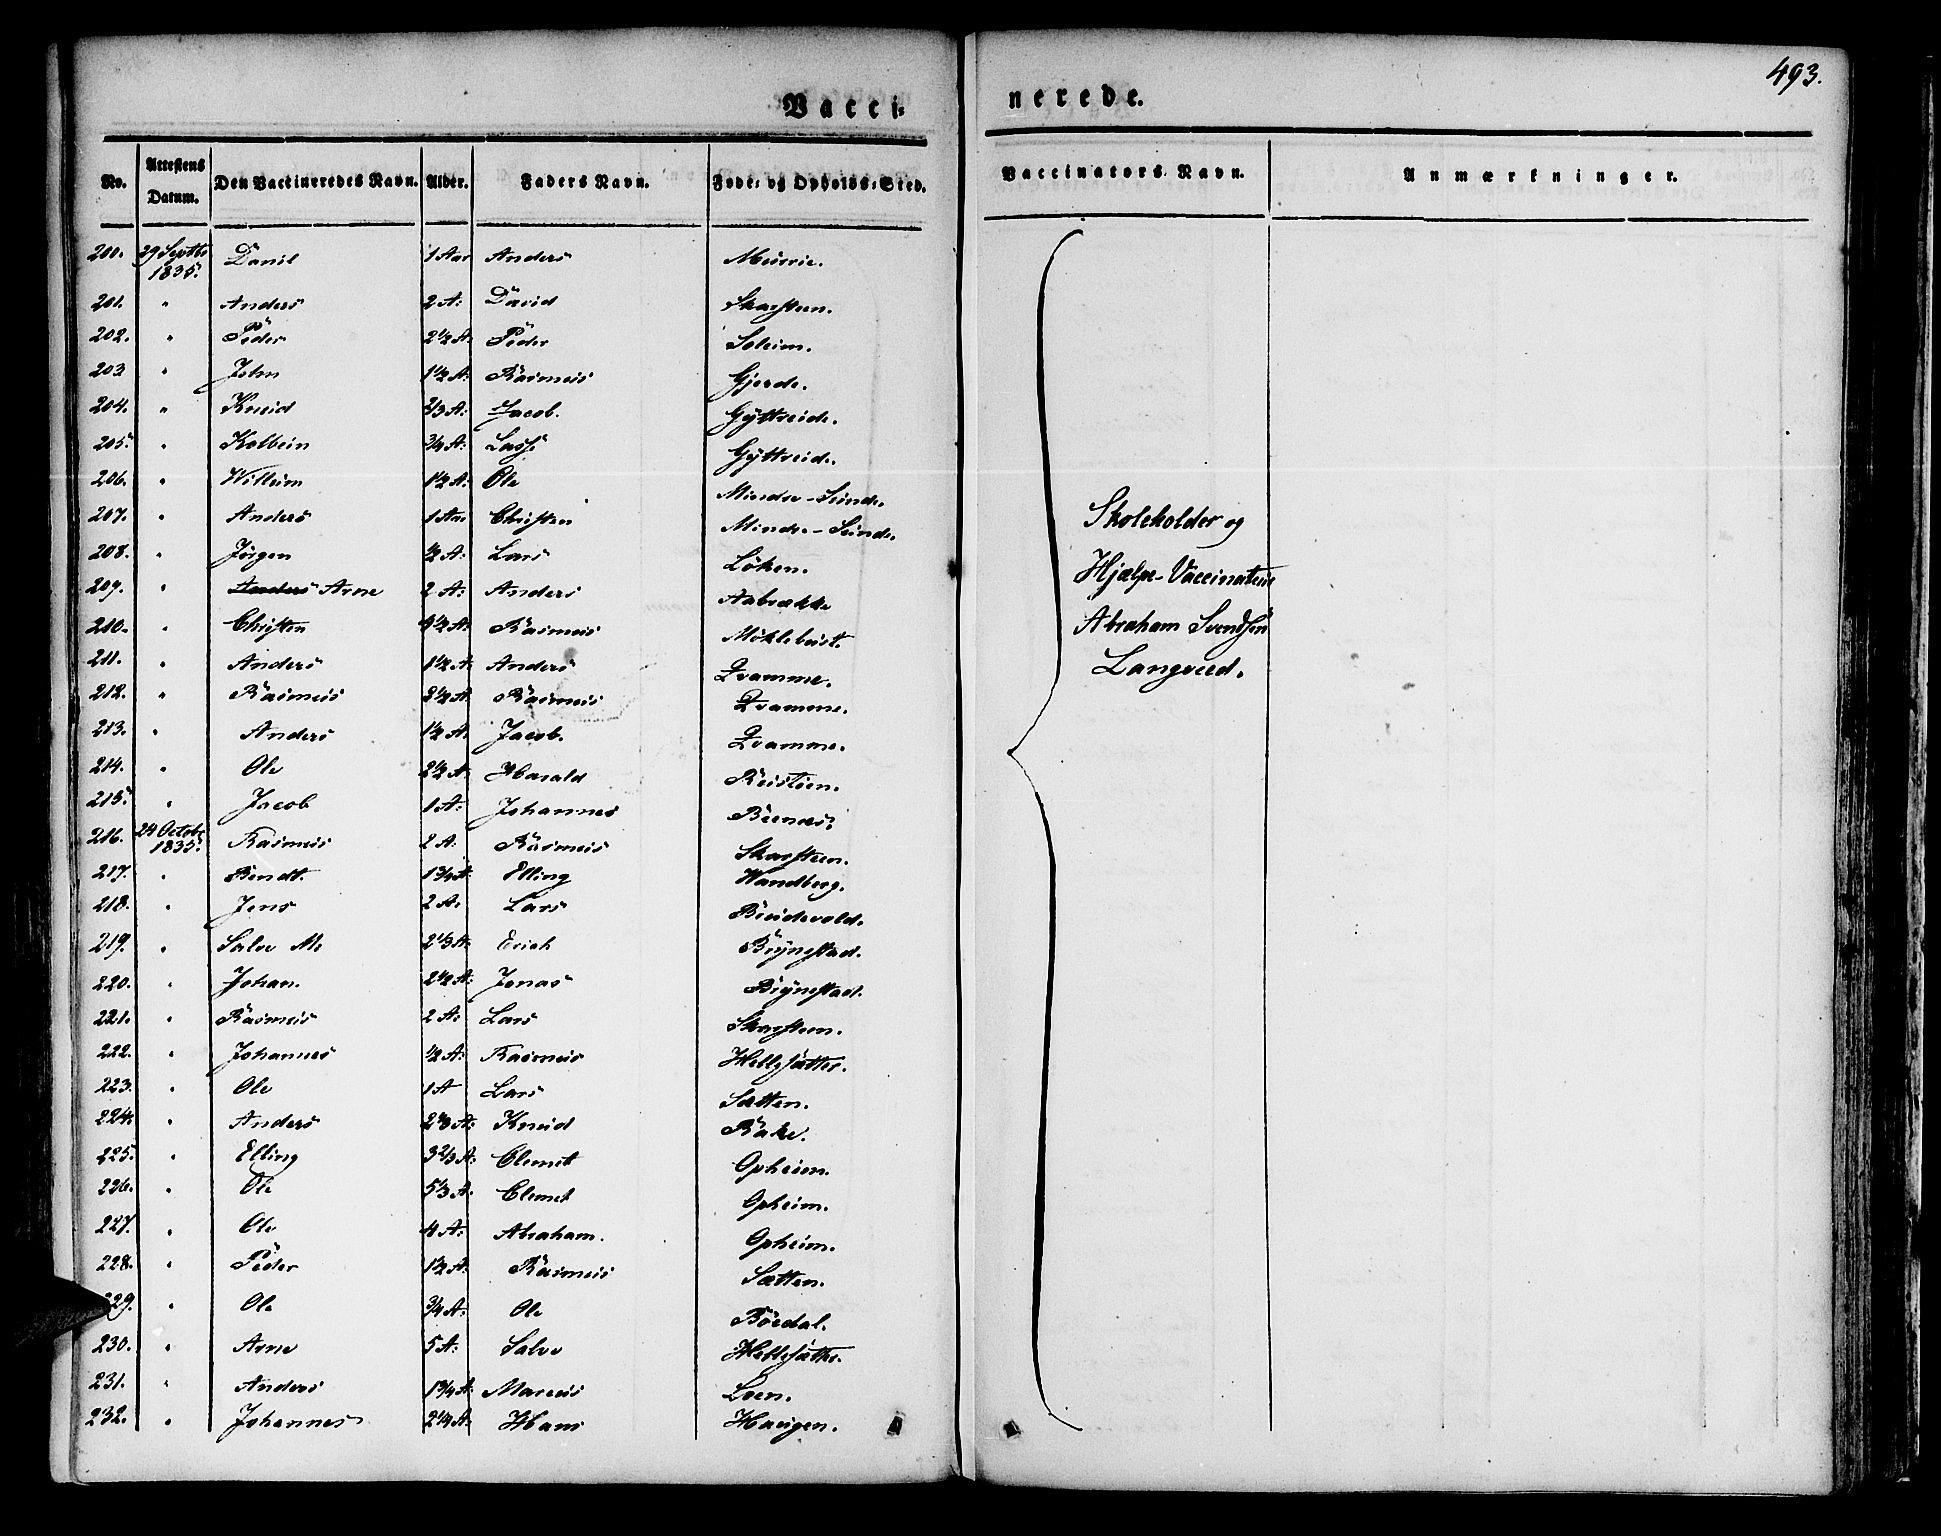 493.
Vacci= nerede.
No. Attestens Datum. Den Vaccineredes Navn. Alder. Faders Navn. Føde= og Opholds=Sted. Vaccinators Navn. Anmærkninger.
200. 29 Septbr 1835. Danil 1 Aar Anders Murrie.
201. " Anders 2 A: David Skarsteen.
202. " Peder 2 1/2 A: Peder Soleim.
203 " John 1 1/2 A: Rasmus Gjerde.
204. " Knud 2/3 A: Jacob. Gyttreide.
205. " Kolbein 3/4 A: Lasse Gyttreide.
206. " Willum 1 1/2 A: Ole Mindre-Sunde.
207. " Anders 1 Aar Christen Mindre-Sunde.
208. " Jørgen 1/2 A: Lars Löken.
209. " Anders Arne 2 A: Anders Aabrække
210. " Christen 4 1/2 A: Rasmus Möklebust.
211. " Anders 1 1/2 A: Anders Qvamme.
212. " Rasmus 3 1/2 A: Rasmus Qvamme.
213. " Anders 1 1/2 A: Jacob. Qvamme.
214. " Ole 2 1/2 A: Harald Rusteen.
215. " Jacob 1 A: Johannes
216. 24 Octobr 1835. Rasmus 2 A. Rasmus Skarsteen.
217. " Bendt. 1 3/4 A: Elling Wandberg.
218. " Jens 2 A: Lars
219. " Salve M: 2 1/3 A: Erich Brynestad.
220. " Johan. 2 1/2 A: Jonas Brynestad.
221. " Rasmus 2 A: Lars Skarsteen.
222. " Johannes 1/2 A: Rasmus Hellesætter.
223. " Ole 1 A Lars Sætten.
224. " Anders 2 2/3 A: Knud Rake.
225. " Elling 3 2/3 A: Clemet Opheim.
226. " Ole 5 1/3 A: Clemet Opheim.
227. " Ole 4 A: Abraham. Opheim.
228. " Peder 1 1/2 A: Rasmus Sætten.
229. " Ole 3/4 A: Ole Bödal.
230. " Arne 5 A: Salve Hellesætter.
231. " Anders 1 3/4 A: Marcus Loen.
232. " Johannes 2 1/4 A: Hans Haugen.
Skoleholder og
Hjælpe-Vaccinateur
Abraham Svendsen
Langsæd.